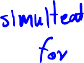 simultead
for